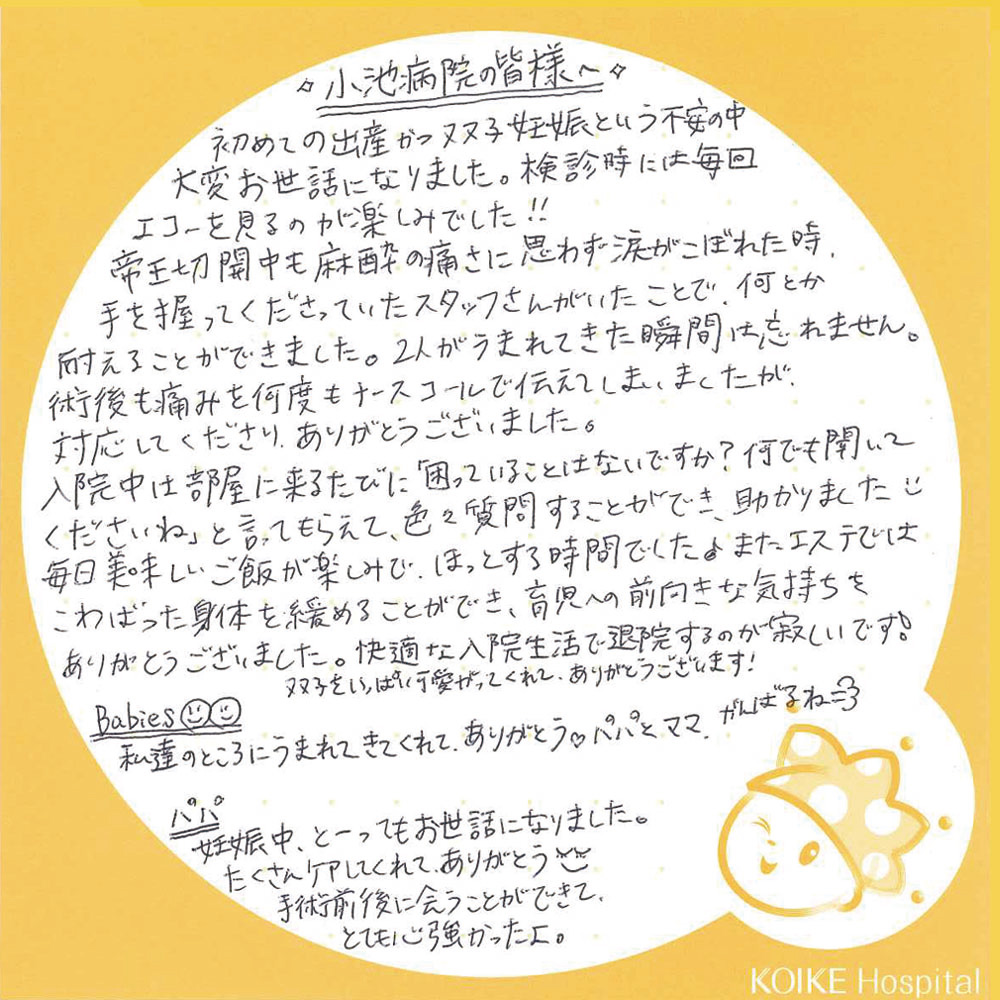 ✧小池病院の皆様へ✧
初めての出産かつ双子妊娠という不安の中
大変お世話になりました。検診時には毎回
エコーを見るのが楽しみでした!!
帝王切開中も麻酔の痛さに思わず涙がこぼれた時、
手を握ってくださっていたスタッフさんがいたことで、何とか
耐えることができました。2人がうまれてきた瞬間は忘れません。
術後も痛みを何度もナースコールで伝えてしまいましたが、
対応してくださり、ありがとうございました。
入院中は部屋に来るたびに「困っていることはないですか?何でも聞いて
くださいね」と言ってもらえて、色々質問することができ、助かりました
毎日美味しいご飯が楽しみで、ほっとする時間でした♪またエステでは
こわばった身体を緩めることができ、育児への前向きな気持ちを
ありがとうございました。快適な入院生活で退院するのが寂しいです!
双子をいっぱい可愛がってくれて、ありがとうございます!
Babies
私達のところにうまれてきてくれて、ありがとう♡パパとママ、がんばるね
パパ
妊娠中、とーってもお世話になりました。
たくさんケアしてくれて、ありがとう
手術前後に会うことができて、
とても心強かったよ。
KOIKE Hospital